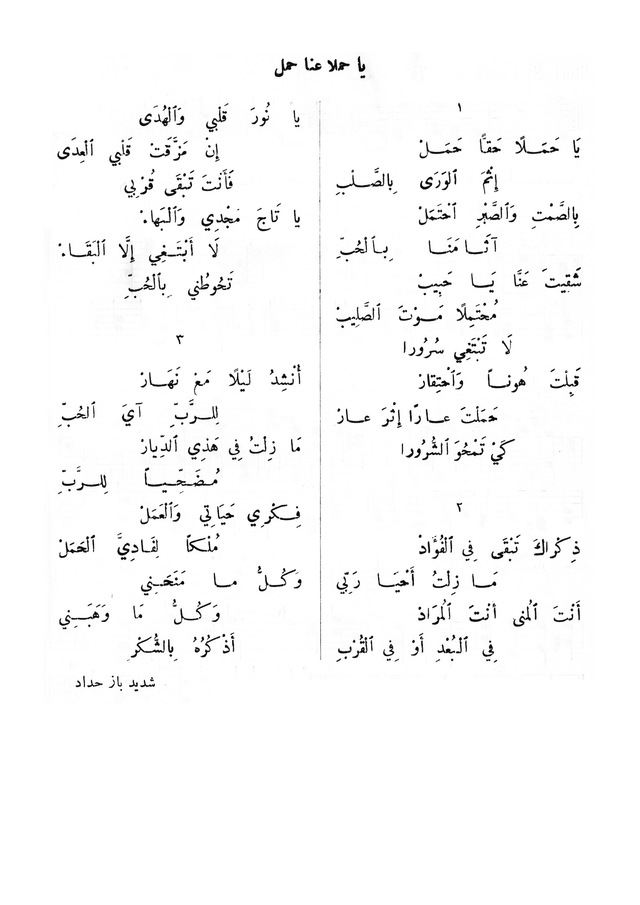 يا حملا عنا حمل
١
يَا حَمَلًا حَقًّا حَمَلْ
إِثْمَ ٱلوَرَى بِالصَّلْبِ
بِالصَّمْتِ وَٱلصَّبْرِ ٱحْتَمَلْ
آثَامَنَا بِٱلحُبِّ
شَقِيتَ عَنَّا يَا حَبِيبْ
مُحْتَمِلًا مَوْتَ ٱلصَّلِيبْ
لَا تَبْتَغِي سُرُورا
قَبِلْتَ هُوناً وَٱحْتِقَارْ
حَمَلْتَ عَارًا إِثْرَ عَارْ
كَيْ تَمْحُوَ ٱلشُّرُورا
٢
ذِكْرَاكَ تَبْقَى فِي ٱلفُؤَادْ
مَا زِلْتُ أَحْيَا رَبِّي
أَنْتَ ٱلمُنَى أَنْتَ ٱلمُرَادْ
فِي ٱلبُعْدِ أَوْ فِي ٱلقُرْبِ
يا نُورَ قَلْبِي وَٱلهُدَى
إِنْ مَزَّقَتْ قَلْبِي ٱلعِدَى
فَأَنتَ تَبْقَى قُرْبِي
يا تَاجَ مَجْدِي وَٱلبَهاء
لَا أَبْتَغِي إِلَّا ٱلبَقَاء
تَحُوطُني بِٱلحُبِّ
٣
أُنْشِدُ لَيْلًا مَعْ نَهَارْ
لِلرَّبِّ آيَ ٱلحُبِّ
مَا زِلْتُ فِي هَذِي ٱلدِّيارْ
مُضَحِّياً لِلرَّبِّ
فِكْرِي حَيَاتِي وَٱلعَمَلْ
مُلْكاً لِفَادِيَّ ٱلحَمَلْ
وَكُلُّ ما مَنَحَنِي
وَكُلُّ مَا وَهَبَنِي
أَذْكُرُهُ بِالشُّكْرِ
شديد باز حداد